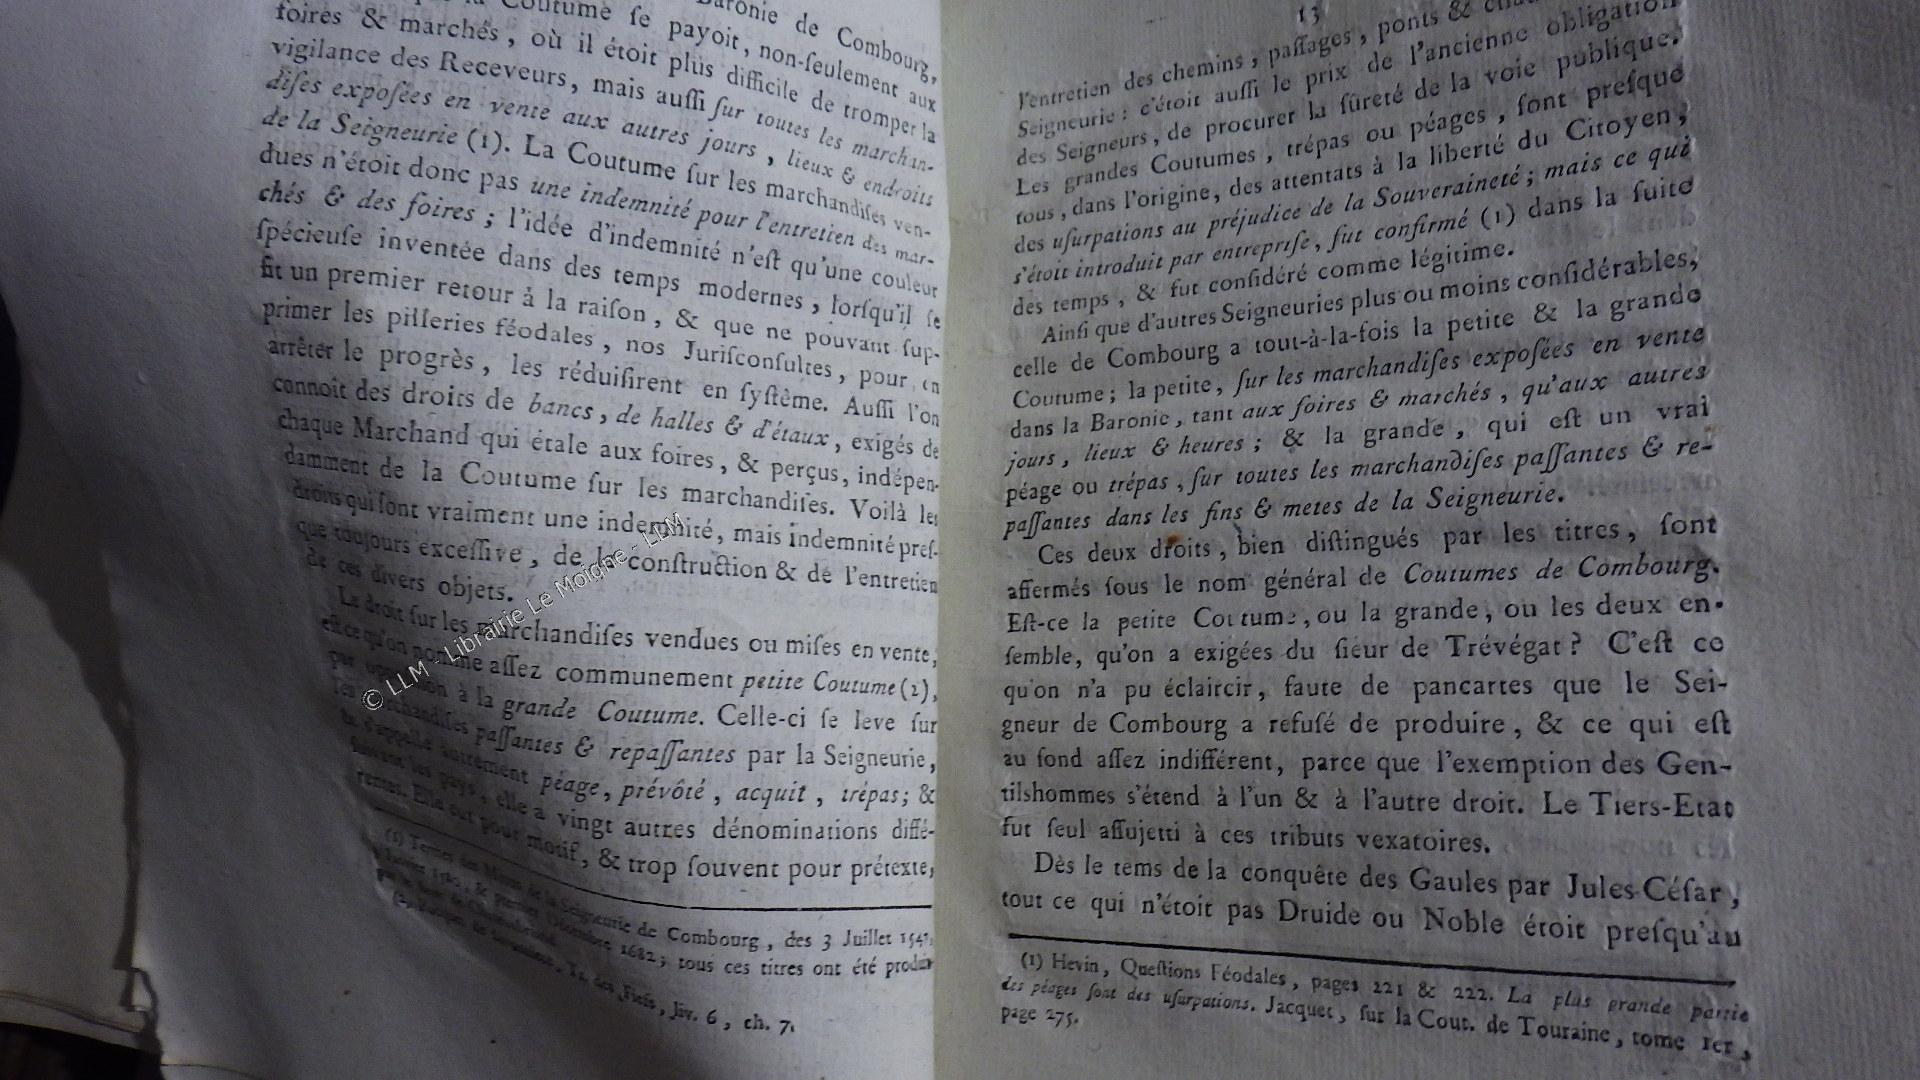 Baronie de Combourg,
Coutume ſe payoit, non-ſeulement aux
foires & marchés, où il étoit plus difficile de tromper la
vigilance des Receveurs, mais auſſi ſur toutes les marchan-
diſes expoſées en vente aux autres jours, lieux & endroits
de la Seigneurie (1). La Coutume ſur les marchandiſes ven-
dues n'étoit donc pas une indemnité pour l'entretien des mar-
chés & des foires; l'idée d'indemnité n'eſt qu'une couleur
ſpécieuſe inventée dans des temps modernes, lorſqu'il ſe
fit un premier retour à la raiſon, & que ne pouvant ſup-
primer les pilleries féodales, nos Juriſconſultes, pour en
arrêter le progrès, les réduiſirent en ſyſtême. Auſſi l'on
connoît des droits de bancs, de halles & d'étaux, exigés de
chaque Marchand qui étale aux foires, & perçus, indépen-
damment de la Coutume ſur les marchandiſes. Voilà les
droits qui ſont vraiment une indemnité, mais indemnité preſ-
que toujours exceſſive, de la conſtruction & de l'entretien
de ces divers objets.
Le droit ſur les marchandiſes vendues ou miſes en vente,
eſt ce qu'on nomme aſſez communement petite Coutume (2),
par oppoſition à la grande Coutume. Celle-ci ſe leve ſur
les marchandiſes paſſantes & repaſſantes par la Seigneurie,
s'appelle autrement péage, prévôté, acquit, trépas; &
ſuivant les pays, elle a vingt autres dénominations diffé-
rentes. Elle eut pour motif, & trop ſouvent pour prétexte,
(1) de la Seigneurie de Combourg, des 3 Juillet 1541,
1682; tous ces titres ont été produits
(2) Tr. des Fiefs, liv. 6, ch. 7.
© LLM - Librairie Le Moigne - LLM
13
l'entretien des chemins, paſſages, ponts &
Seigneurie: c'étoit auſſi le prix de l'ancienne obligation
des Seigneurs, de procurer la ſûreté de la voie publique.
Les grandes Coutumes, trépas ou péages, ſont preſque
tous, dans l'origine, des attentats à la liberté du Citoyen,
des uſurpations au préjudice de la Souveraineté; mais ce qui
s'étoit introduit par entrepriſe, fut confirmé (1) dans la ſuite
des temps, & fut conſidéré comme légitime.
Ainſi que d'autres Seigneuries plus ou moins conſidérables,
celle de Combourg a tout-à-la-fois la petite & la grande
Coutume; la petite, ſur les marchandiſes expoſées en vente
dans la Baronie, tant aux foires & marchés, qu'aux autres
jours, lieux & heures; & la grande, qui eſt un vrai
péage ou trépas, ſur toutes les marchandiſes paſſantes & re-
paſſantes dans les fins & metes de la Seigneurie.
Ces deux droits, bien diſtingués par les titres, ſont
affermés ſous le nom général de Coutumes de Combourg.
Eſt-ce la petite Coutume, ou la grande, ou les deux en-
ſemble, qu'on a exigées du ſieur de Trévégat? C'eſt ce
qu'on n'a pu éclaircir, faute de pancartes que le Sei-
gneur de Combourg a refuſé de produire, & ce qui eſt
au fond aſſez indifférent, parce que l'exemption des Gen-
tilshommes s'étend à l'un & à l'autre droit. Le Tiers-Etat
fut ſeul aſſujetti à ces tributs vexatoires.
Dès le tems de la conquête des Gaules par Jules-Céſar,
tout ce qui n'étoit pas Druide ou Noble étoit preſqu'au
(1) Hevin, Queſtions Féodales, pages 221 & 222. La plus grande partie
des péages ſont des uſurpations. Jacquet, ſur la Cout. de Touraine, tome 1er,
page 275.